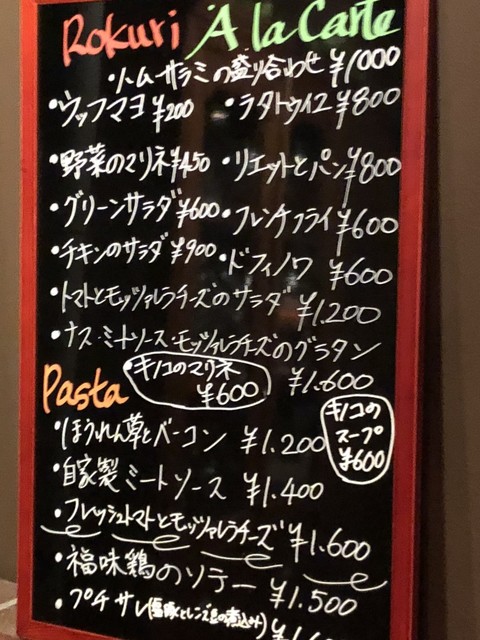 Rokuri A la Carte
・ハム・サラミの盛り合わせ ¥1000
・ウッフマヨ ¥200 ・ラタトゥイユ ¥800
・野菜のマリネ ¥450 ・リエットとパン ¥800
・グリーンサラダ ¥600 ・フレンチフライ ¥600
・チキンのサラダ ¥900 ・ドフィノワ ¥600
・トマトとモッツァレラチーズのサラダ ¥1,200
・ナス・ミートソース・モッツァレラチーズのグラタン
¥1.600
・キノコのマリネ
¥600
Pasta
キノコの
スープ
¥600
・ほうれん草とベーコン ¥1.200
・自家製ミートソース ¥1.400
・フレッシュトマトとモッツァレラチーズ ¥1.600
・福味鶏のソテー ¥1.500
・プチサレ(塩豚とレンズ豆の煮込み)